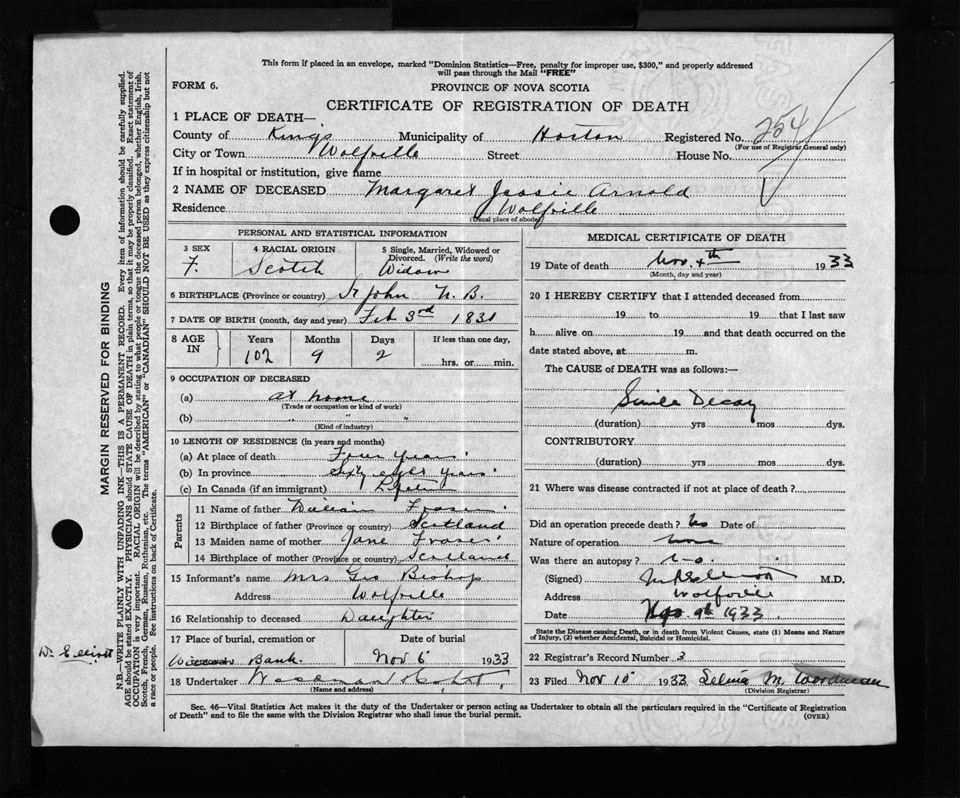 This form if placed in an envelope, marked "Dominion Statistics—Free, penalty for improper use, $300," and properly addressed
will pass through the Mail "FREE"
FORM 6.
PROVINCE OF NOVA SCOTIA
CERTIFICATE OF REGISTRATION OF DEATH
1 PLACE OF DEATH—
County of Kings Municipality of Horton Registered No. 254
(For use of Registrar General only)
City or Town Wolfville Street House No.
If in hospital or institution, give name
2 NAME OF DECEASED Margaret Jessie Arnold
Residence Wolfville
(Usual place of abode)
PERSONAL AND STATISTICAL INFORMATION
3 SEX 4 RACIAL ORIGIN 5 Single, Married, Widowed or Divorced. (Write the word)
F. Scotch Widow
6 BIRTHPLACE (Province or country) St John N. B.
7 DATE OF BIRTH (month, day and year) Feb 3rd 1831
8 AGE IN Years Months Days If less than one day,
102 9 2 hrs. or min.
9 OCCUPATION OF DECEASED
(a) at home
(Trade or occupation or kind of work)
(b) " " "
(Kind of industry)
10 LENGTH OF RESIDENCE (in years and months)
(a) At place of death Four years
(b) In province Sixty eight years
(c) In Canada (if an immigrant)
Parents
11 Name of father William Fraser
12 Birthplace of father (Province or country) Scotland
13 Maiden name of mother Jane Fraser
14 Birthplace of mother (Province or country) Scotland
15 Informant's name Mrs Geo Bishop
Address Wolfville
16 Relationship to deceased Daughter
17 Place of burial, cremation or Date of burial
Bank Nov 6 1933
18 Undertaker
(Name and address)
MEDICAL CERTIFICATE OF DEATH
19 Date of death Nov. 4th 1933
(Month, day and year)
20 I HEREBY CERTIFY that I attended deceased from
19 to 19 that I last saw
h alive on 19 and that death occurred on the
date stated above, at m.
The CAUSE of DEATH was as follows:—
Senile Decay
(duration) yrs mos dys.
CONTRIBUTORY
(duration) yrs mos dys.
21 Where was disease contracted if not at place of death?
Did an operation precede death? No Date of
Nature of operation None
Was there an autopsy? No
(Signed) M.D.
Address Wolfville
Date 9th 1933
State the Disease causing Death, or in death from Violent Causes, state (1) Means and Nature
of Injury, (2) whether Accidental, Suicidal or Homicidal.
22 Registrar's Record Number 3
23 Filed Nov 10 1933 Selma M. Woodman
(Division Registrar)
Sec. 46—Vital Statistics Act makes it the duty of the Undertaker or person acting as Undertaker to obtain all the particulars required in the "Certificate of Registration
of Death" and to file the same with the Division Registrar who shall issue the burial permit.
(OVER)
MARGIN RESERVED FOR BINDING
N.B.—WRITE PLAINLY WITH UNFADING INK—THIS IS A PERMANENT RECORD. Every item of information should be carefully supplied.
AGE should be stated EXACTLY. PHYSICIANS should STATE CAUSE OF DEATH in plain terms, so that it may be properly classified. Exact statement of
OCCUPATION is very important. RACIAL ORIGIN will be described by stating to what people or tongue the deceased person belonged, whether English, Irish,
Scotch, French, German, Russian, Ruthenian, etc. The terms "AMERICAN" or "CANADIAN" SHOULD NOT BE USED as they express citizenship but not
a race or people. See instructions on back of Certificate.
Dr Elliott